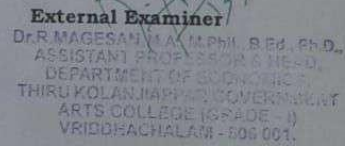 External Examiner
Dr.R.MAGESAN, M.A., M.Phil., B.Ed., Ph.D.,
ASSISTANT PROFESSOR & HEAD,
DEPARTMENT OF ECONOMICS,
THIRU KOLANJIAPPAR GOVERNMENT
ARTS COLLEGE (GRADE - I)
VRIDDHACHALAM - 606 001.